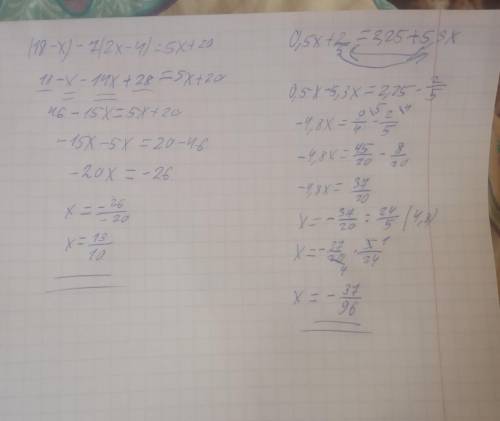 (18-x)-7(2x-4)=5x+20
18-x-14x+28=5x+20
46-15x=5x+20
-15x-5x=20-46
-20x=-26
x=-26/-20
x=13/10
0,5x+2/5=2,25+5,3x
0,5x-5,3x=2,25-2/5
-4,8x=9/4-2/5
-4,8x=45/20-8/20
-4,8x=37/20
x=-37/20:24/5(4,8)
x=-37/20·5/24
x=-37/96